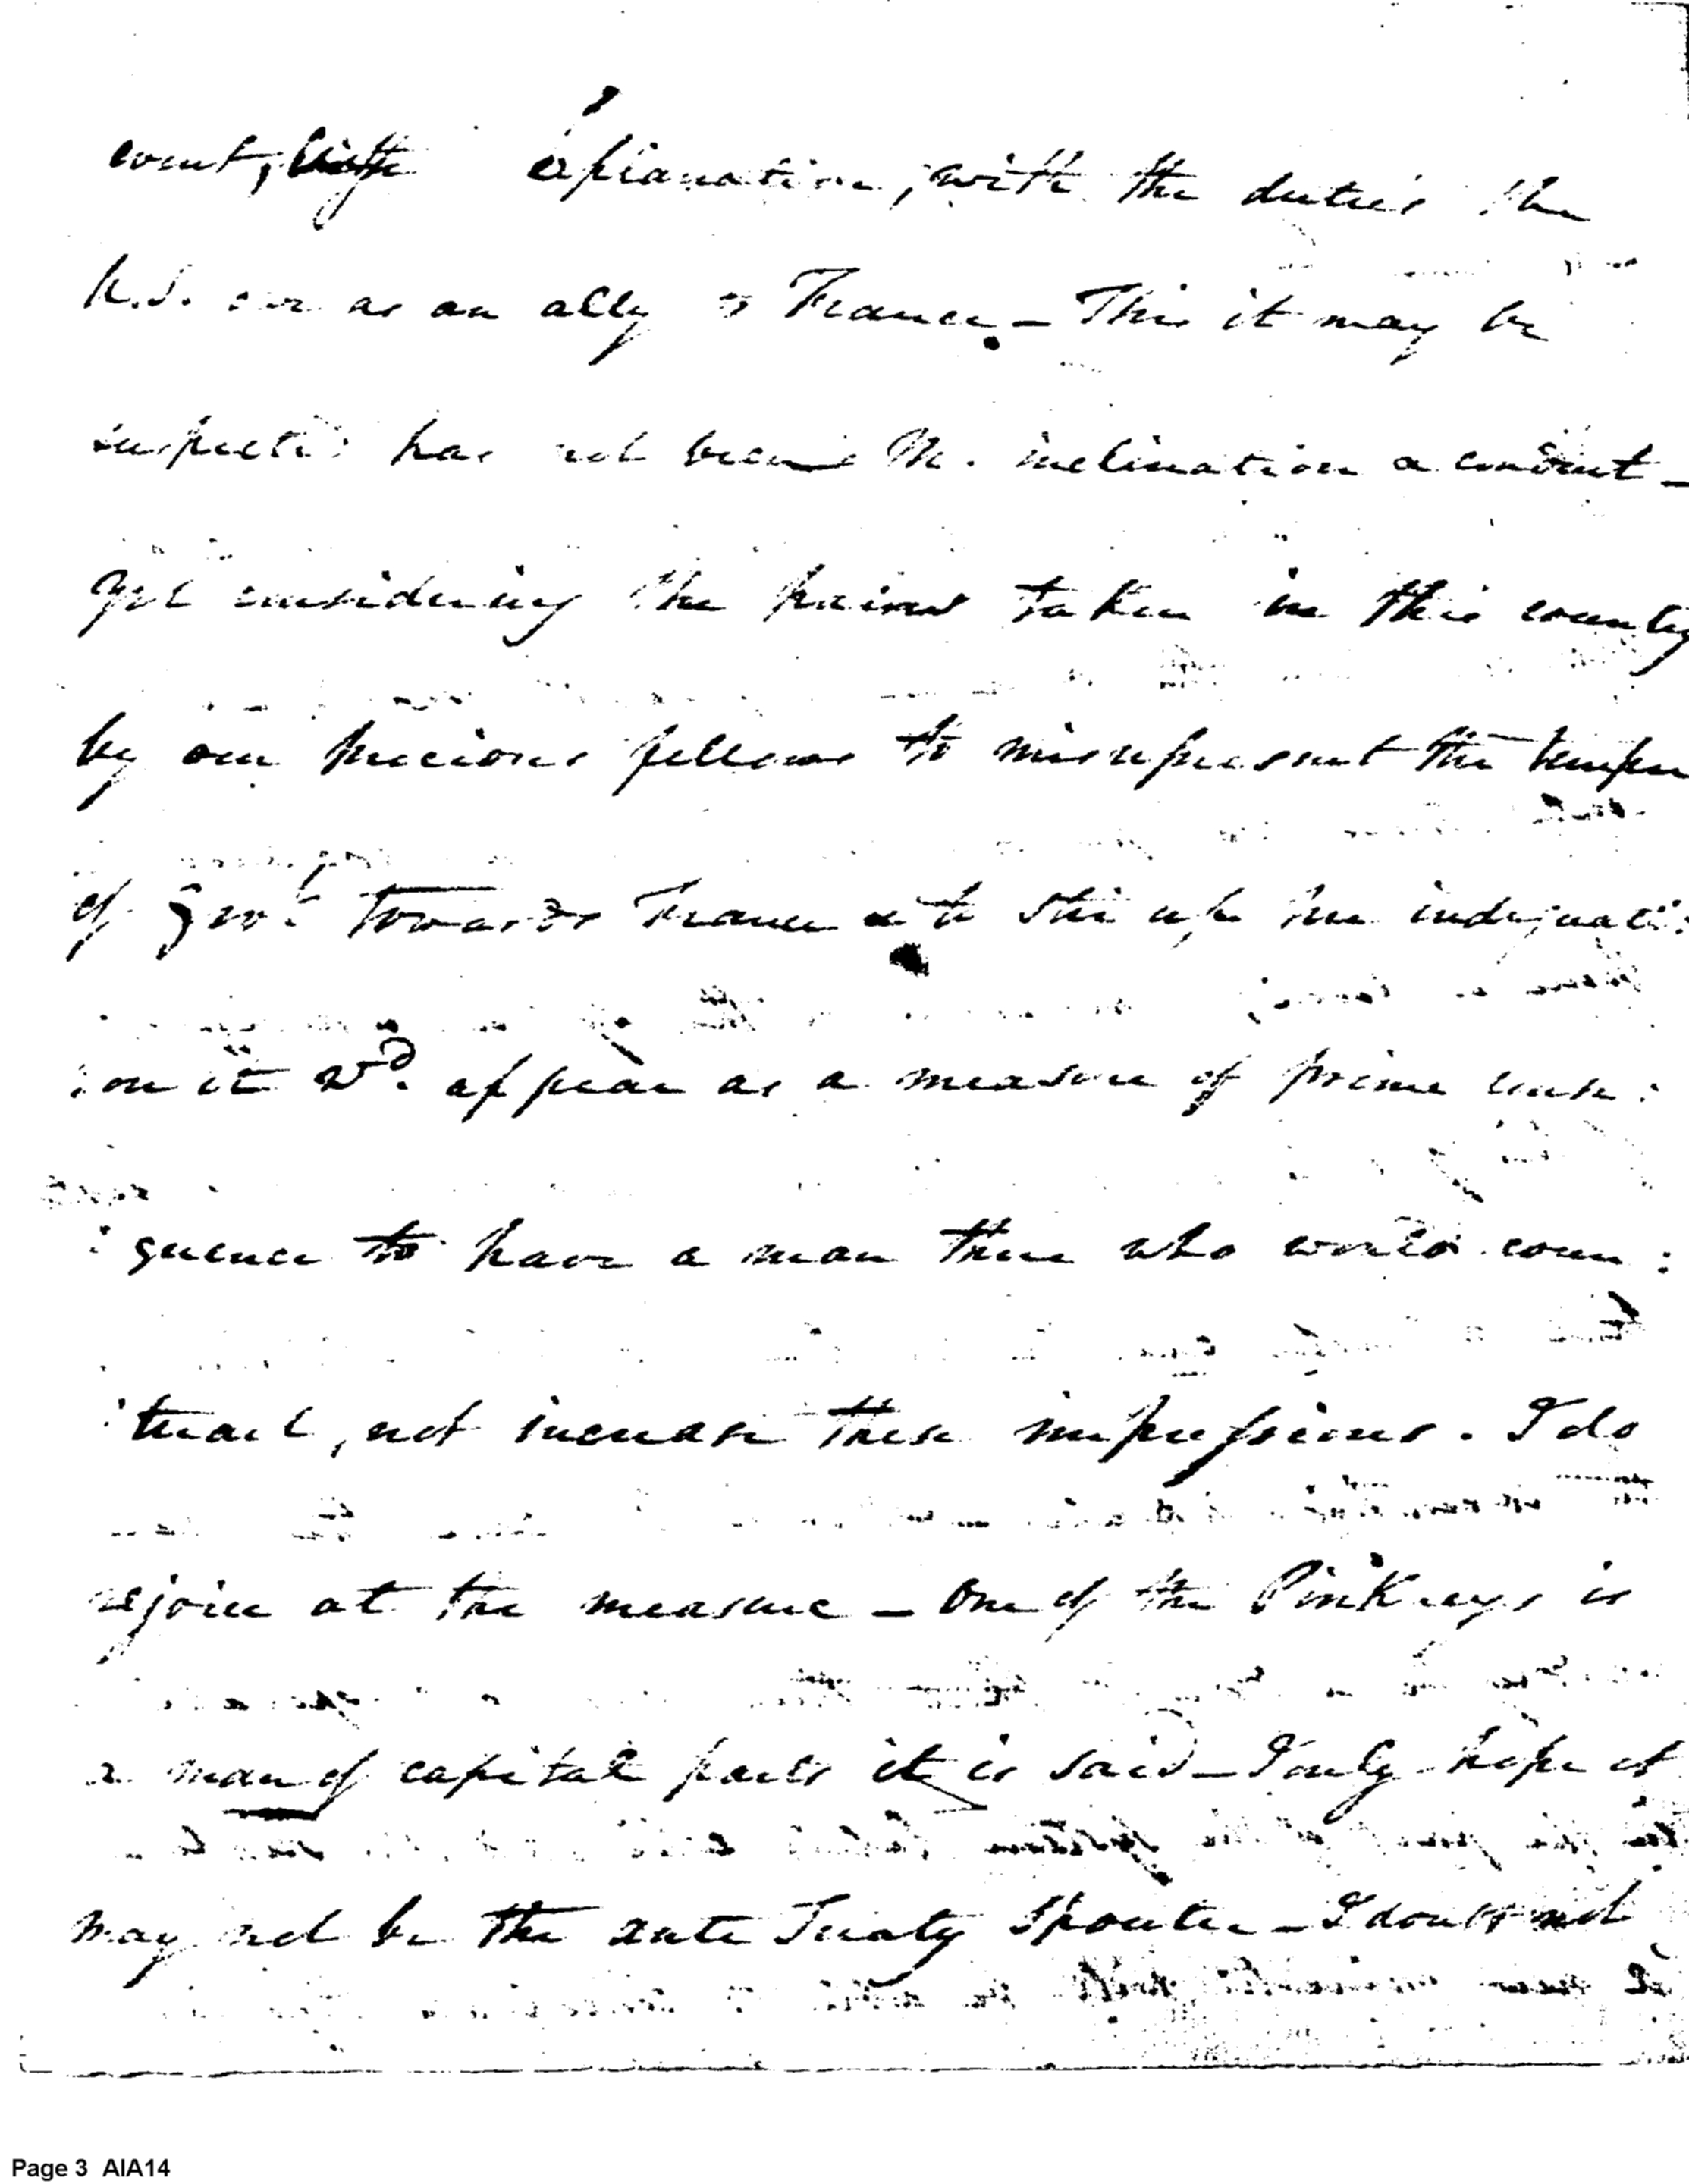 count, explanation, with the duties the
U.S. owe as an ally to France - This it may be
suspected has not been M. inclination a conduct -
yet considering the pains taken in this country
by our precious fellows to misrepresent the temper
of Govt. towards France & to stir up her indignati:
:on it wd. appear as a measure of prime conse:
:quence to have a man there who would coun:
:teract, not increase these impressions. I do
rejoice at the measure - One of the Pinkneys is
a man of capital parts it is said - I only hope it
may not be the ante Treaty Spouter - I doubt not
Page 3 AIA14